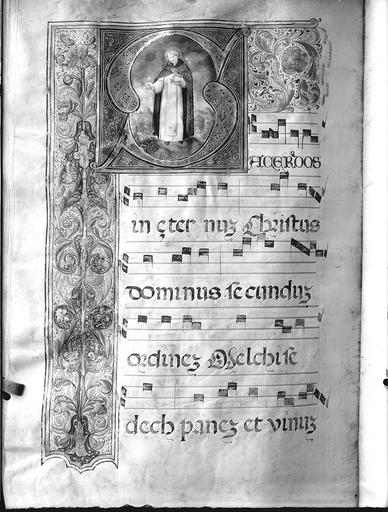 SACERDOS
in eter nuz Christus
dominus secunduz
ordinez Melchise
dech panez et vinuz